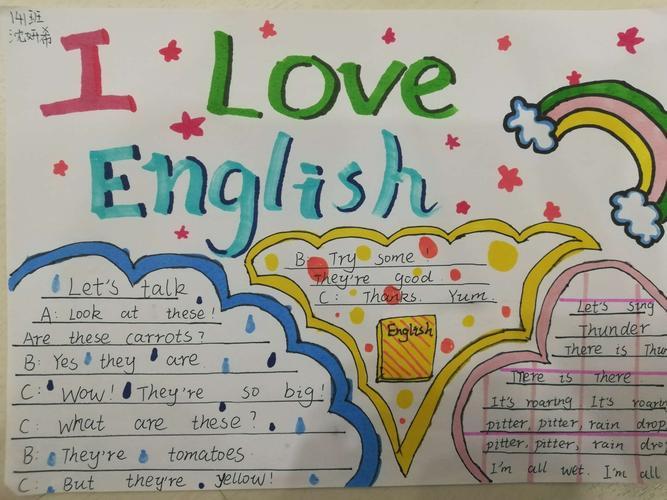 141班
沈妍希
I Love
English
Let's talk
A: Look at these!
Are these carrots?
B: Yes they are.
C: Wow! They're so big!
C: What are these?
B: They're tomatoes.
C: But they're yellow!
B: Try some!
They're good.
C: Thanks. Yum.
English
Let's sing
Thunder
There is Thun
There is There
It's roaring It's roarin
pitter, pitter, rain drop
pitter, pitter, rain drop
I'm all wet. I'm all